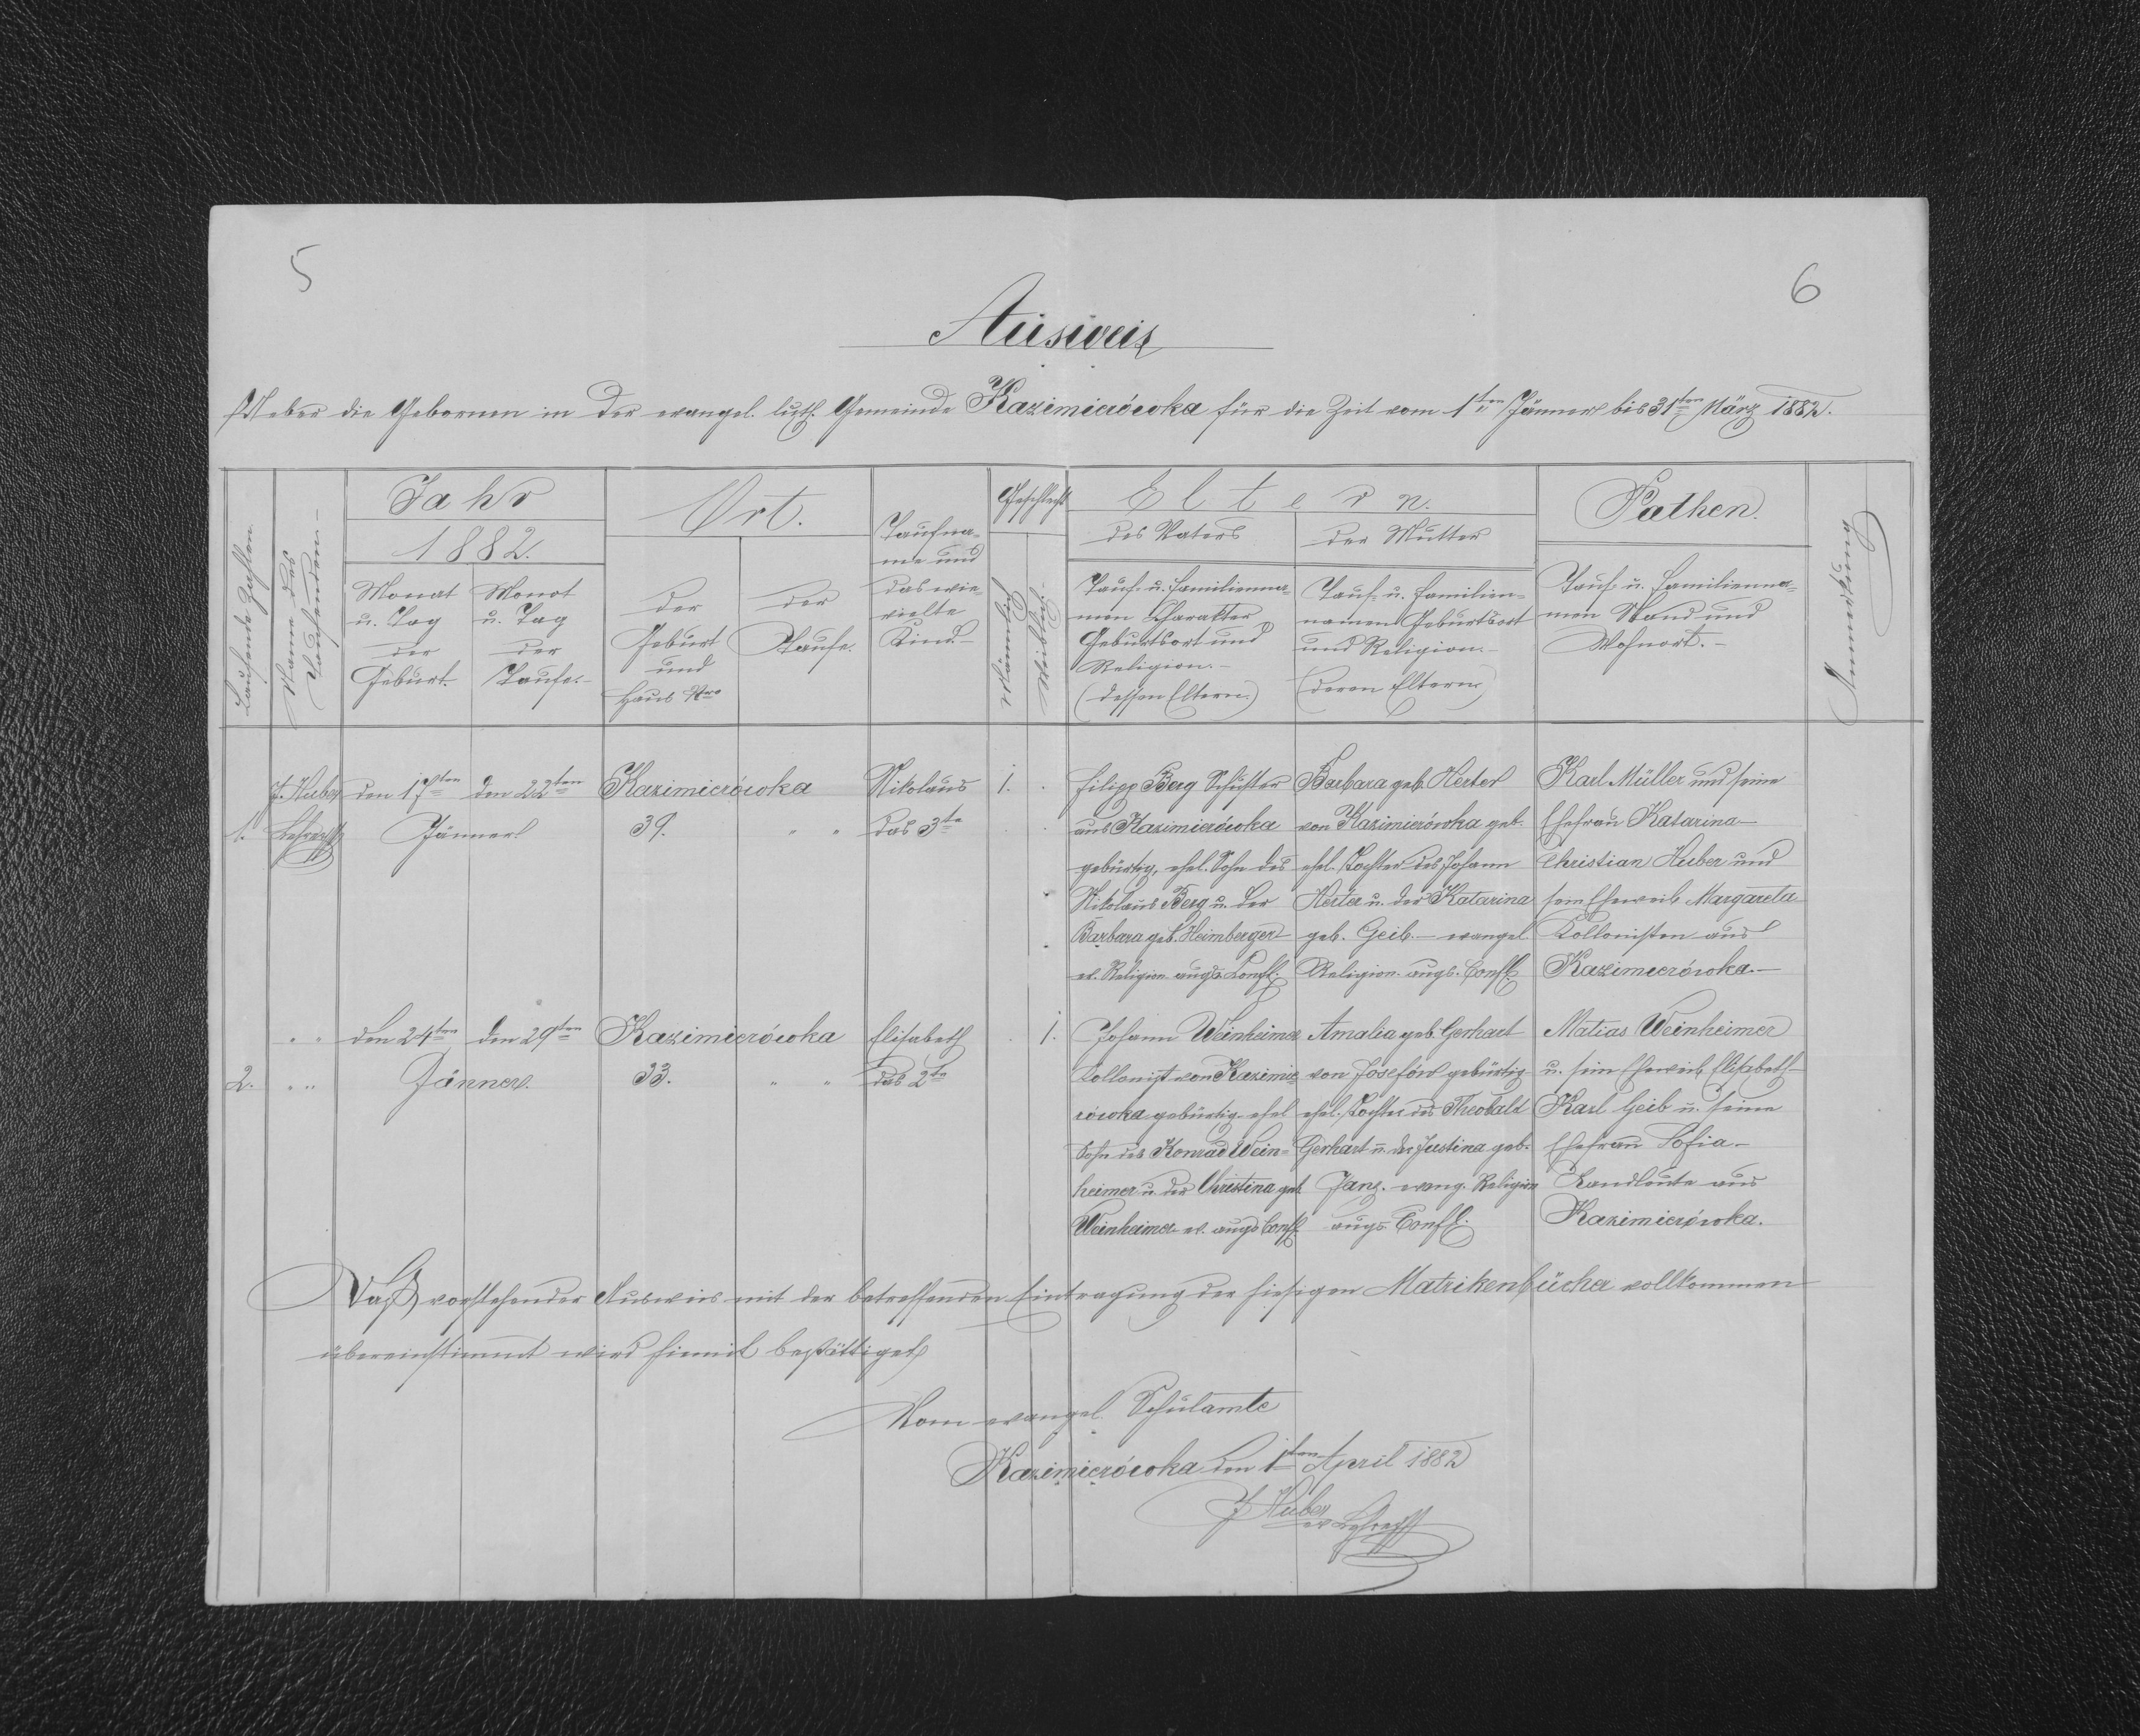 5
6
Ausweis
Ueber die Gebornen in der evangel. luth. Gemeinde Kazimierówka für die Zeit vom 1ten Jänner bis 31ten März 1882.
Laufende Zahlen
Name des Taufenden
Jahr
1882.
Monat
u. Tag
der
Geburt.
Monat
u. Tag
der
Taufe.
Ort.
der
Geburt
und
Haus Nro
der
Taufe.
Taufna-
me und
das wie-
vielte
Kind
Geschlecht
Mänlich
Weiblich
Eltern.
des Vaters
der Mutter
Tauf- u. Familienna-
men Charakter
Geburtsort und
Religion.-
(dessen Eltern)
Tauf- u. Familien-
namen Geburtsort
und Religion.-
(deren Eltern)
Pathen.
Tauf- u. Familienna-
men Stand und
Wohnort.-
Anmerkung
1.
J. Huber
den 17ten den 22ten
Jänner
Kazimierówka
39. " "
Nikolaus
das 3te
1.
Filipp Berg Schuster
aus Kazimierówka
gebürtig, ehel. Sohn des
Nikolaus Berg u. der
Barbara geb. Heimberger
ev. Religion augs. Conff.
Barbara geb. Herter
von Kazimierówka geb.
ehel. Tochter des Johann
Herter u. der Katarina
geb. Geib.- evangel
Religion augs. Conff.
Karl Müller und seine
Ehefrau Katarina-
Christian Huber und
sein Eheweib Margareta
Kollonisten aus
Kazimierówka.-
2.
" "
" "
den 24ten den 29ten
Jänner.
Kazimierówka
33. " "
Elisabeth
das 2te
1.
Johann Weinheimer
Kollonist von Kazimie
rówka gebürtig ehel
Sohn des Konrad Wein=
heimer u. der Christina geb
Weinheimer ev. augs Conff.
Amalia geb. Gerhart
von Josefów gebürtig
ehel. Tochter des Theobald
Gerhart u. der Justina geb.
Janz. evang. Religion
augs. Conff.
Matias Weinheimer
u. sein Eheweib Elisabeth
Karl Geib u. seine
Ehefrau Sofia-
Landleute aus
Kazimierówka.
Daß vorstehender Ausweis mit der betreffenden Eintragung der hiesigen Matrikenbücher vollkommen
übereinstimmt wird hiemit bestättiget
Vom evangel. Schulamte
Kazimierówka den 1ten April 1882
J Huber